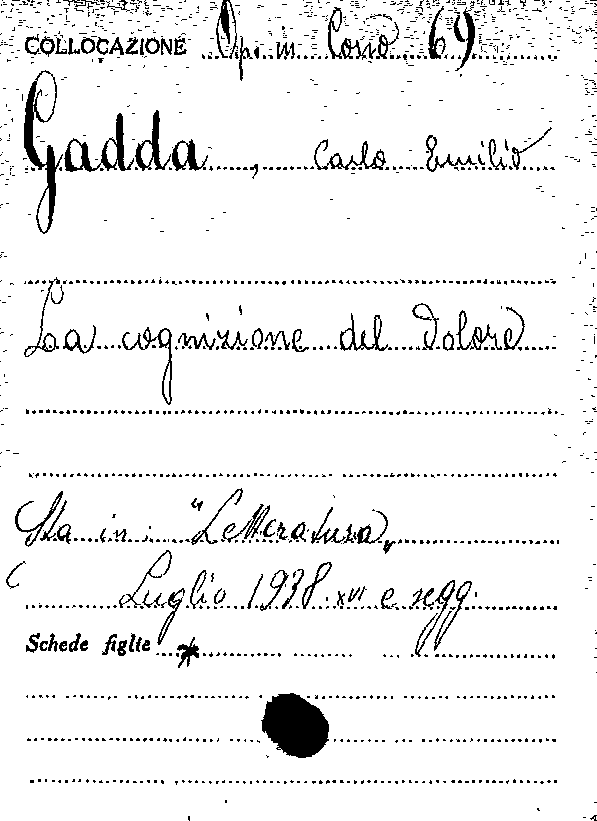 COLLOCAZIONE Op. in Corso 69
Gadda, Carlo Emilio
La cognizione del dolore
Sta in: "Letteratura„
Luglio 1938.XVI e segg.
Schede figlie *